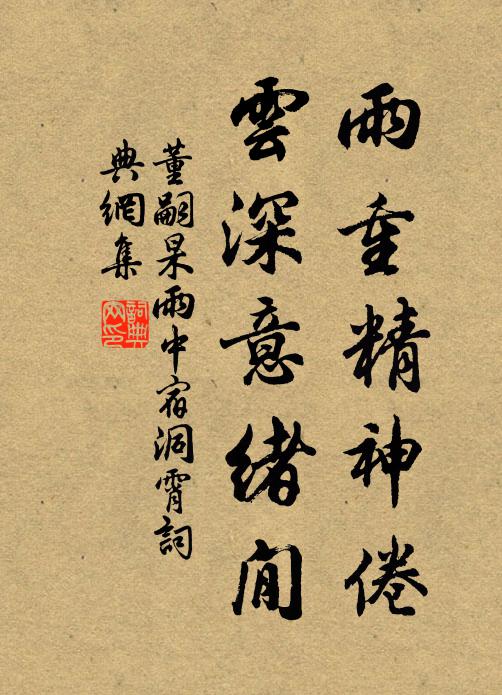 雨重精神倦
雲深意緒閒
董嗣杲雨中宿洞霄詞
典網集
詞典網印